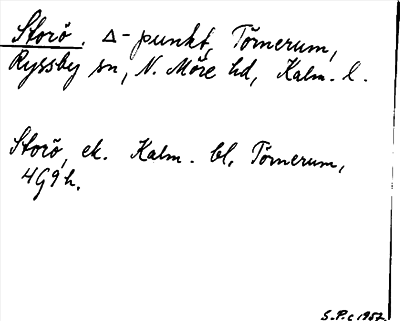 Storö, Δ-punkt, Törnerum,
Ryssby sn, N. Möre hd, Kalm. l.
Storö, ek. Kalm. bl, Törnerum,
4G9h.
S.P.c 1957